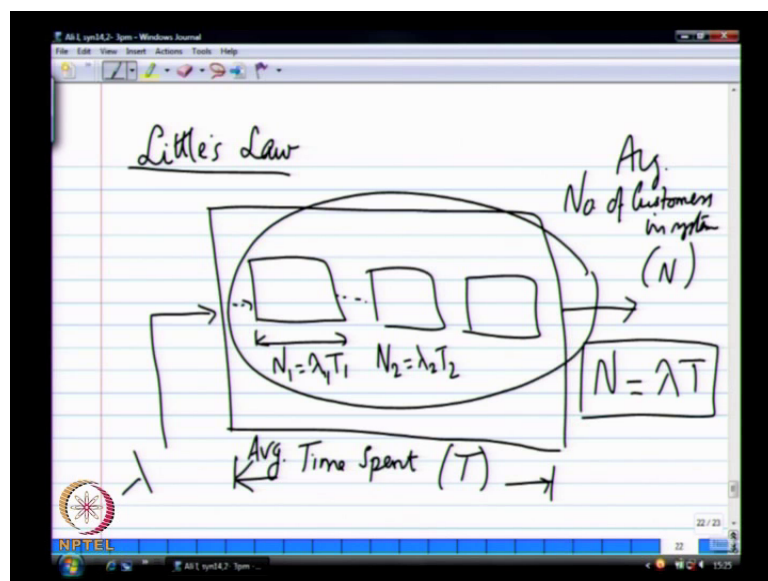 Ali I, syn14,2- 3pm - Windows Journal
File Edit View Insert Actions Tools Help
Little's Law
Avg.
No. of Customers
in system
(N)
N₁ = λ₁T₁ N₂ = λ₂T₂
N = λT
Avg. Time Spent (T)
λ
22 / 23
22
NPTEL
Ali I, syn14,2- 3pm -...
15:25